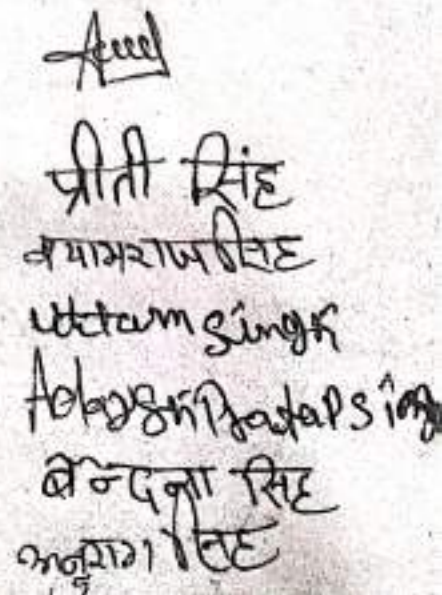 प्रीती सिंह
श्यामराज सिंह
uttam singh
Adarsh Pratap singh
बन्दना सिंह
अनुराग सिंह